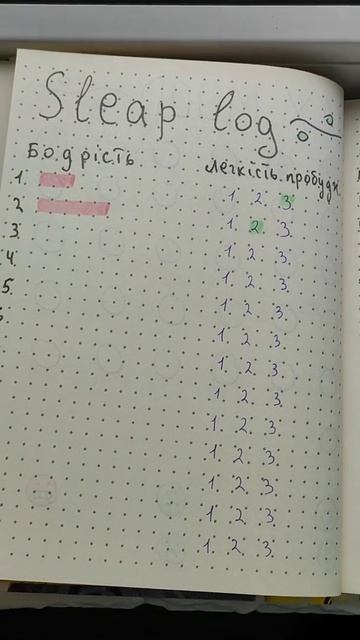 Sleap log
Бодрість
легкість пробудж.
1. 1. 2. 3.
2 1. 2. 3.
3. 1. 2. 3.
4. 1. 2. 3.
5. 1. 2. 3.
1. 2. 3.
1. 2. 3.
1. 2. 3.
1. 2. 3.
1. 2. 3.
1. 2. 3.
1. 2. 3.
1. 2. 3.